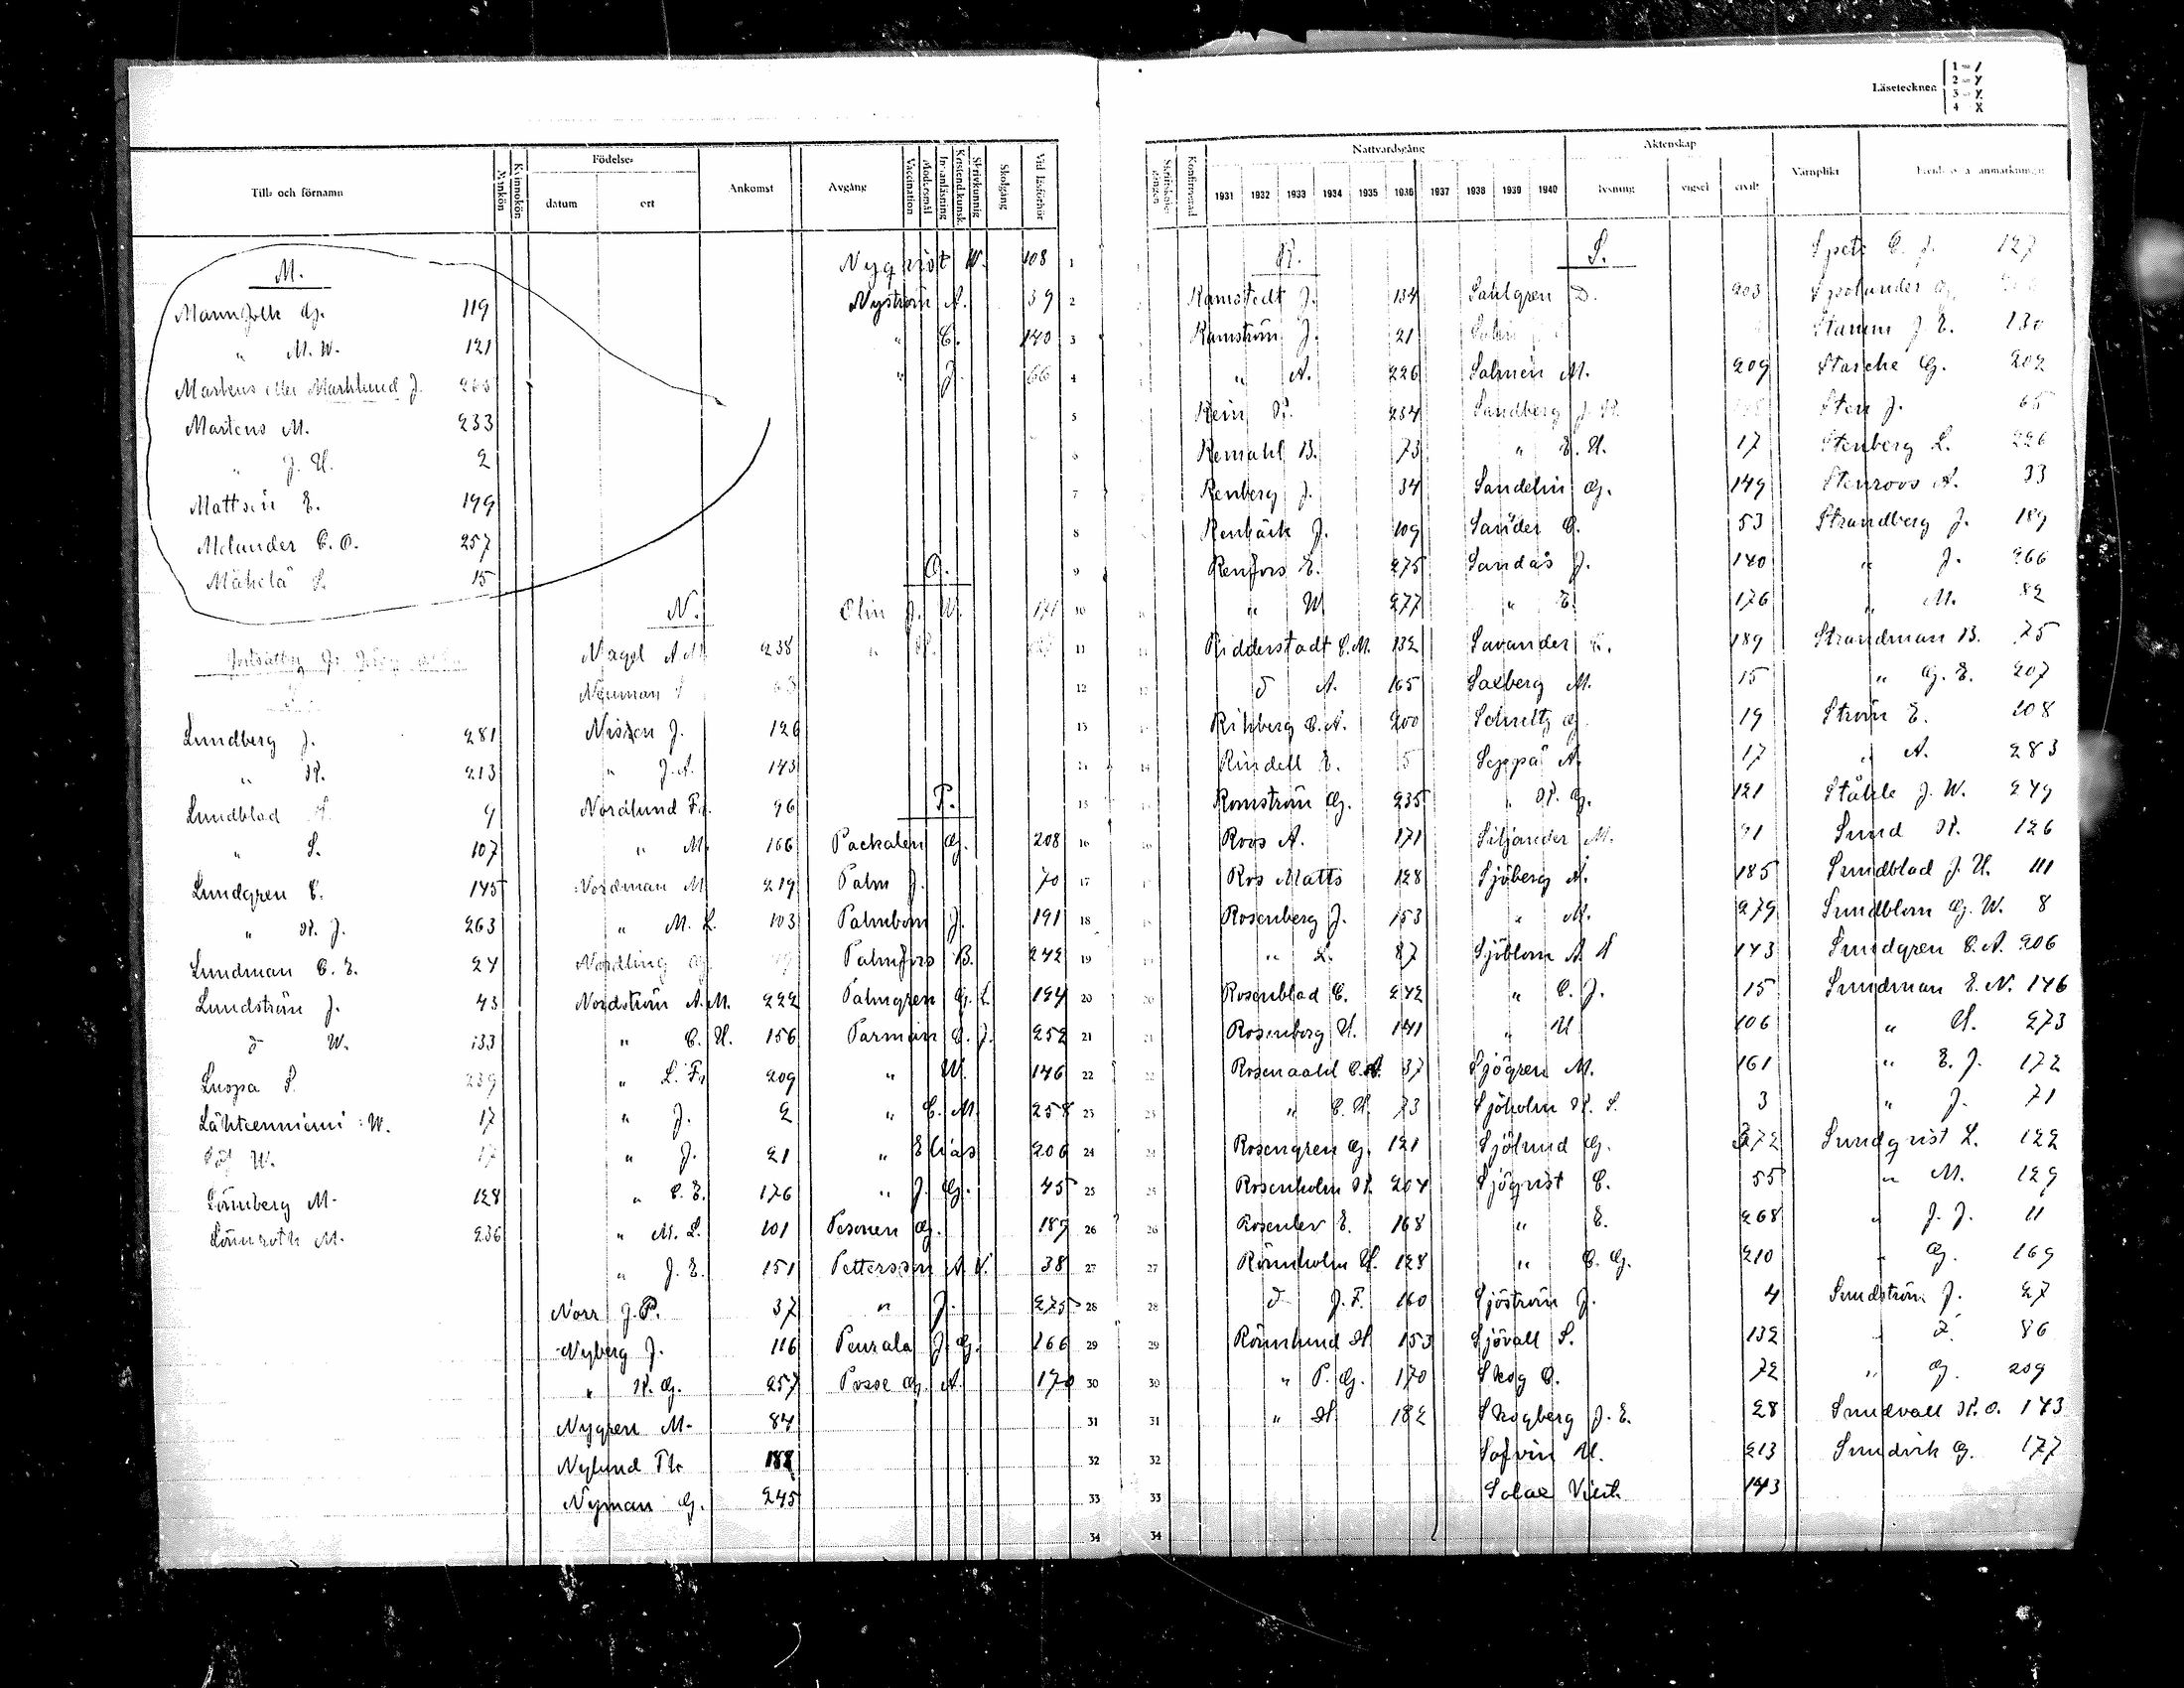 Läsetecknen
1 = /
2 = Y
3 = Y
4 X
Till- och förnamn
Mankön
Kvinnokön
Födelse-
datum
ort
Ankomst
Avgång
Vaccination
Modersmål
Innanläsning
Kristendkunsk.
Skrivkunnig
Skolgång
Vid läsförhör
M.
Mannfolk G. 119
" M. W. 121
Martens eller Marklund J. 265
Martens M. 233
" J. H. 2
Mattsén E. 199
Melander C. O. 257
Mäkelä S. 15
Lundberg J. 281
" H. 213
Lundblad 9
" S. 107
Lundgren C. 145
" H. J. 263
Lundman C. E. 24
Lundström J. 43
d W. 133
Luopa S. 239
Lähteenniemi W. 17
W. 17
Lönnberg M. 128
Lönnroth M. 236
N.
Nagel A. M. 238
Neuman
Nissen J. 126
" J. A. 143
Nordlund Fr. 96
" M. 166
Nordman M. 219
" M. L. 103
Nordling G.
Nordström A. M. 222
" C. H. 156
" L. Fr. 209
" J. 2
" J. 21
" C. E. 176
" M. L. 101
" J. E. 151
Norr J. P. 37
Nyberg J. 116
" H. G. 257
Nygren M. 84
Nylund Th. 188
Nyman G. 245
Nyqvist W. 108
Nyström A. 39
" C. 140
" J. 66
O.
Olin J. W. 141
P.
Packalen G. 208
Palm J. 70
Palmbom J. 191
Palmfors B. 242
Palmgren G. L. 194
Parman C. J. 252
" W. 146
" C. M. 258
" Elias 206
" J. G. 45
Pesonen G. 189
Petterson A. V. 38
" J. 275
Peurala J. G. 166
Posse G. A. 170
Skriftskolegången
Konfirmerad
Nattvardsgång
1931 1932 1933 1934 1935 1936 1937 1938 1939 1940
Äktenskap
lysning
vigsel
civilt
Värnplikt
R.
Ramstedt J. 134
Ramström J. 21
" A. 226
Rein H. 234
Remahl B. 73
Renberg J. 34
Renbäck J. 109
Renfors E. 275
" W. 277
Ridderstadt C. M. 132
d A. 165
Rihberg C. A. 200
Rindell E. 5
Romström G. 235
Roos A. 171
Ros Matts 128
Rosenberg J. 153
" L. 87
Rosenblad C. 242
Rosenberg H. 141
Rosendahl C. A. 37
" C. H. 73
Rosengren G. 121
Rosenholm H. 204
Rosenlev E. 168
Rönnholm H. 128
d J. F. 160
Rönnlund H. 153
" P. G. 170
" H. 182
S.
Sahlgren D. 203
Salmén M. 209
Sandberg J. H.
" E. H. 17
Sandelin G. 149
Sander C. 53
Sandås J. 140
" E. 176
Savander 189
Saxberg M. 15
Schultz G. 19
Seppä A. 17
" H. G. 121
Siljander M. 91
Sjöberg A. 185
" M. 279
Sjöblom A. 143
" C. J. 15
" H 106
Sjögren M. 161
Sjöholm H. S. 3
Sjölund G. 272
Sjöqvist C. 55
" E. 268
" C. G. 210
Sjöström J. 4
Sjövall S. 132
Skog C. 72
Skogberg J. E. 28
Sofvin H. 213
143
Spets C. J. 127
Spolander G.
Stamm J. E. 130
Stasche G. 202
Sten J. 65
Stenberg L. 226
Stenroos A. 33
Strandberg J. 189
" J. 266
" M. 82
Strandman B. 75
" G. E. 207
Ström E. 108
" A. 283
Ståhle J. W. 249
Sund H. 126
Sundblad J. H. 111
Sundblom G. W. 8
Sundgren C. A. 206
Sundman E. N. 146
" H. 273
" E. J. 172
" J. 71
Sundqvist L. 122
" M. 129
" J. J. 11
" G. 169
Sundström J. 27
" 86
" G. 209
Sundvall H. O. 143
Sundvik G. 177
1
2
3
4
5
6
7
8
9
10
11
12
13
14
15
16
17
18
19
20
21
22
23
24
25
26
27
28
29
30
31
32
33
34